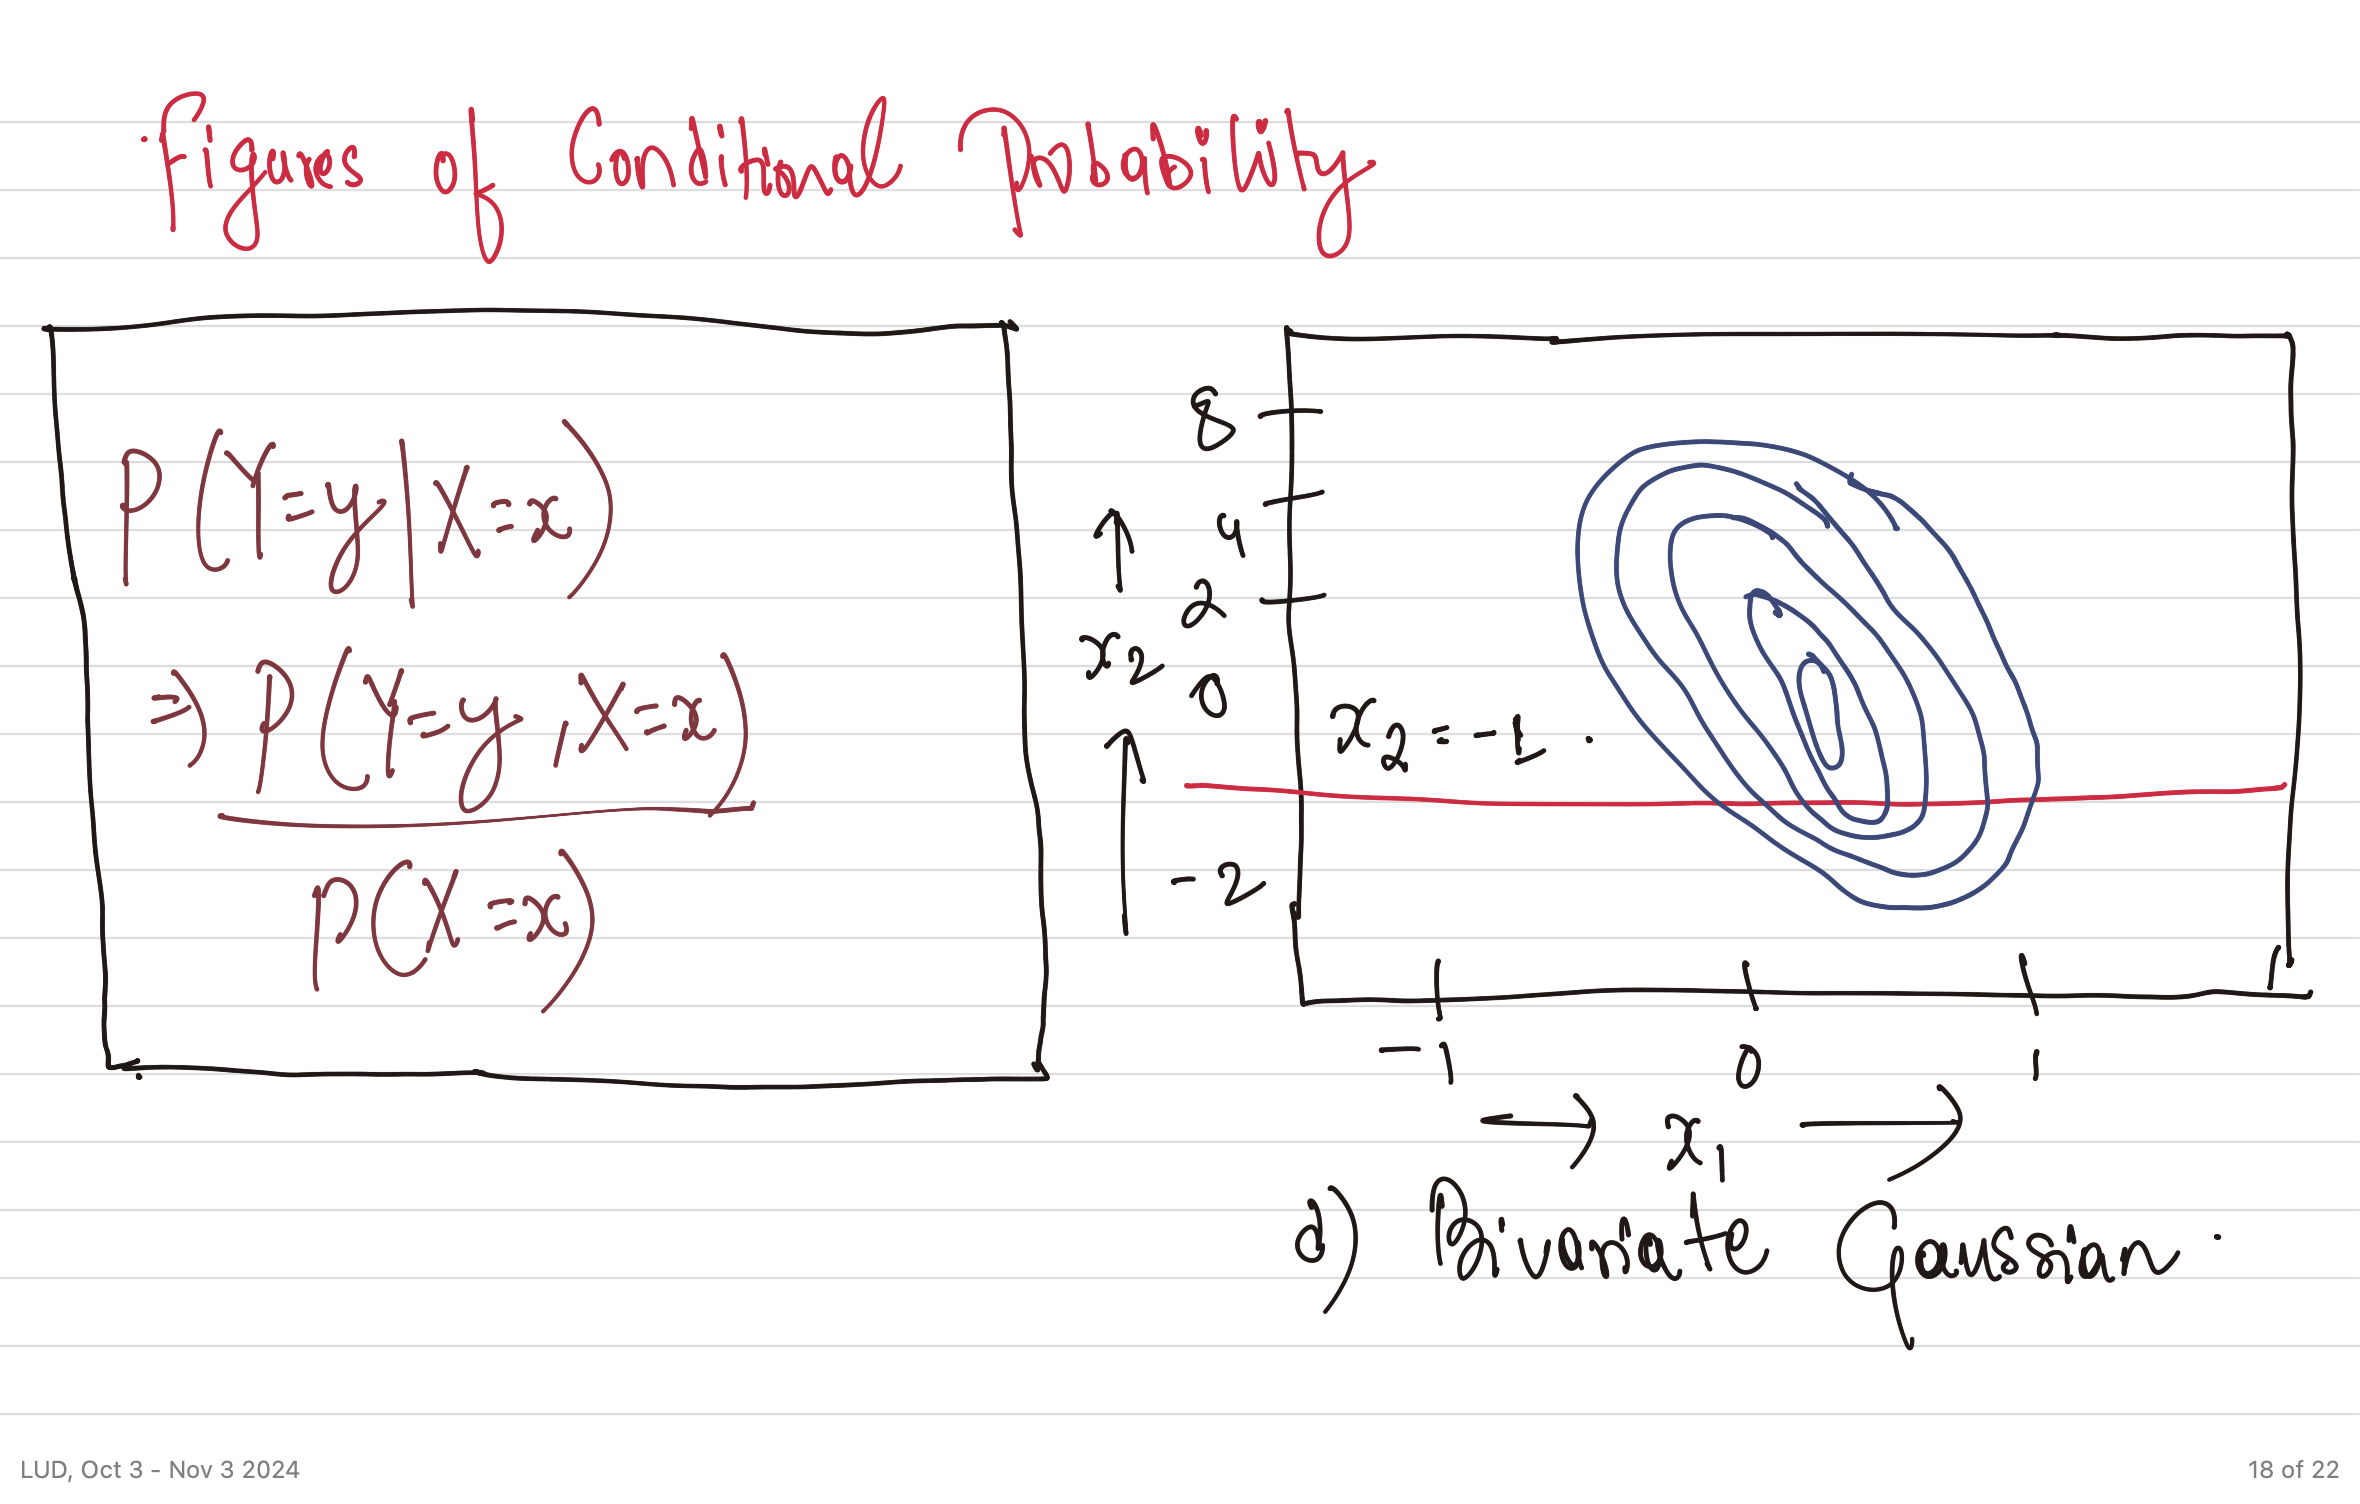 Figures of Conditional Probability
P(Y=y|X=x)
⇒ P(Y=y,X=x)
P(X=x)
8
4
2
x₂
0
x₂ = -1.
-2
-1 0 1
→ x₁ →
d) Bivariate Gaussian.
LUD, Oct 3 - Nov 3 2024
18 of 22